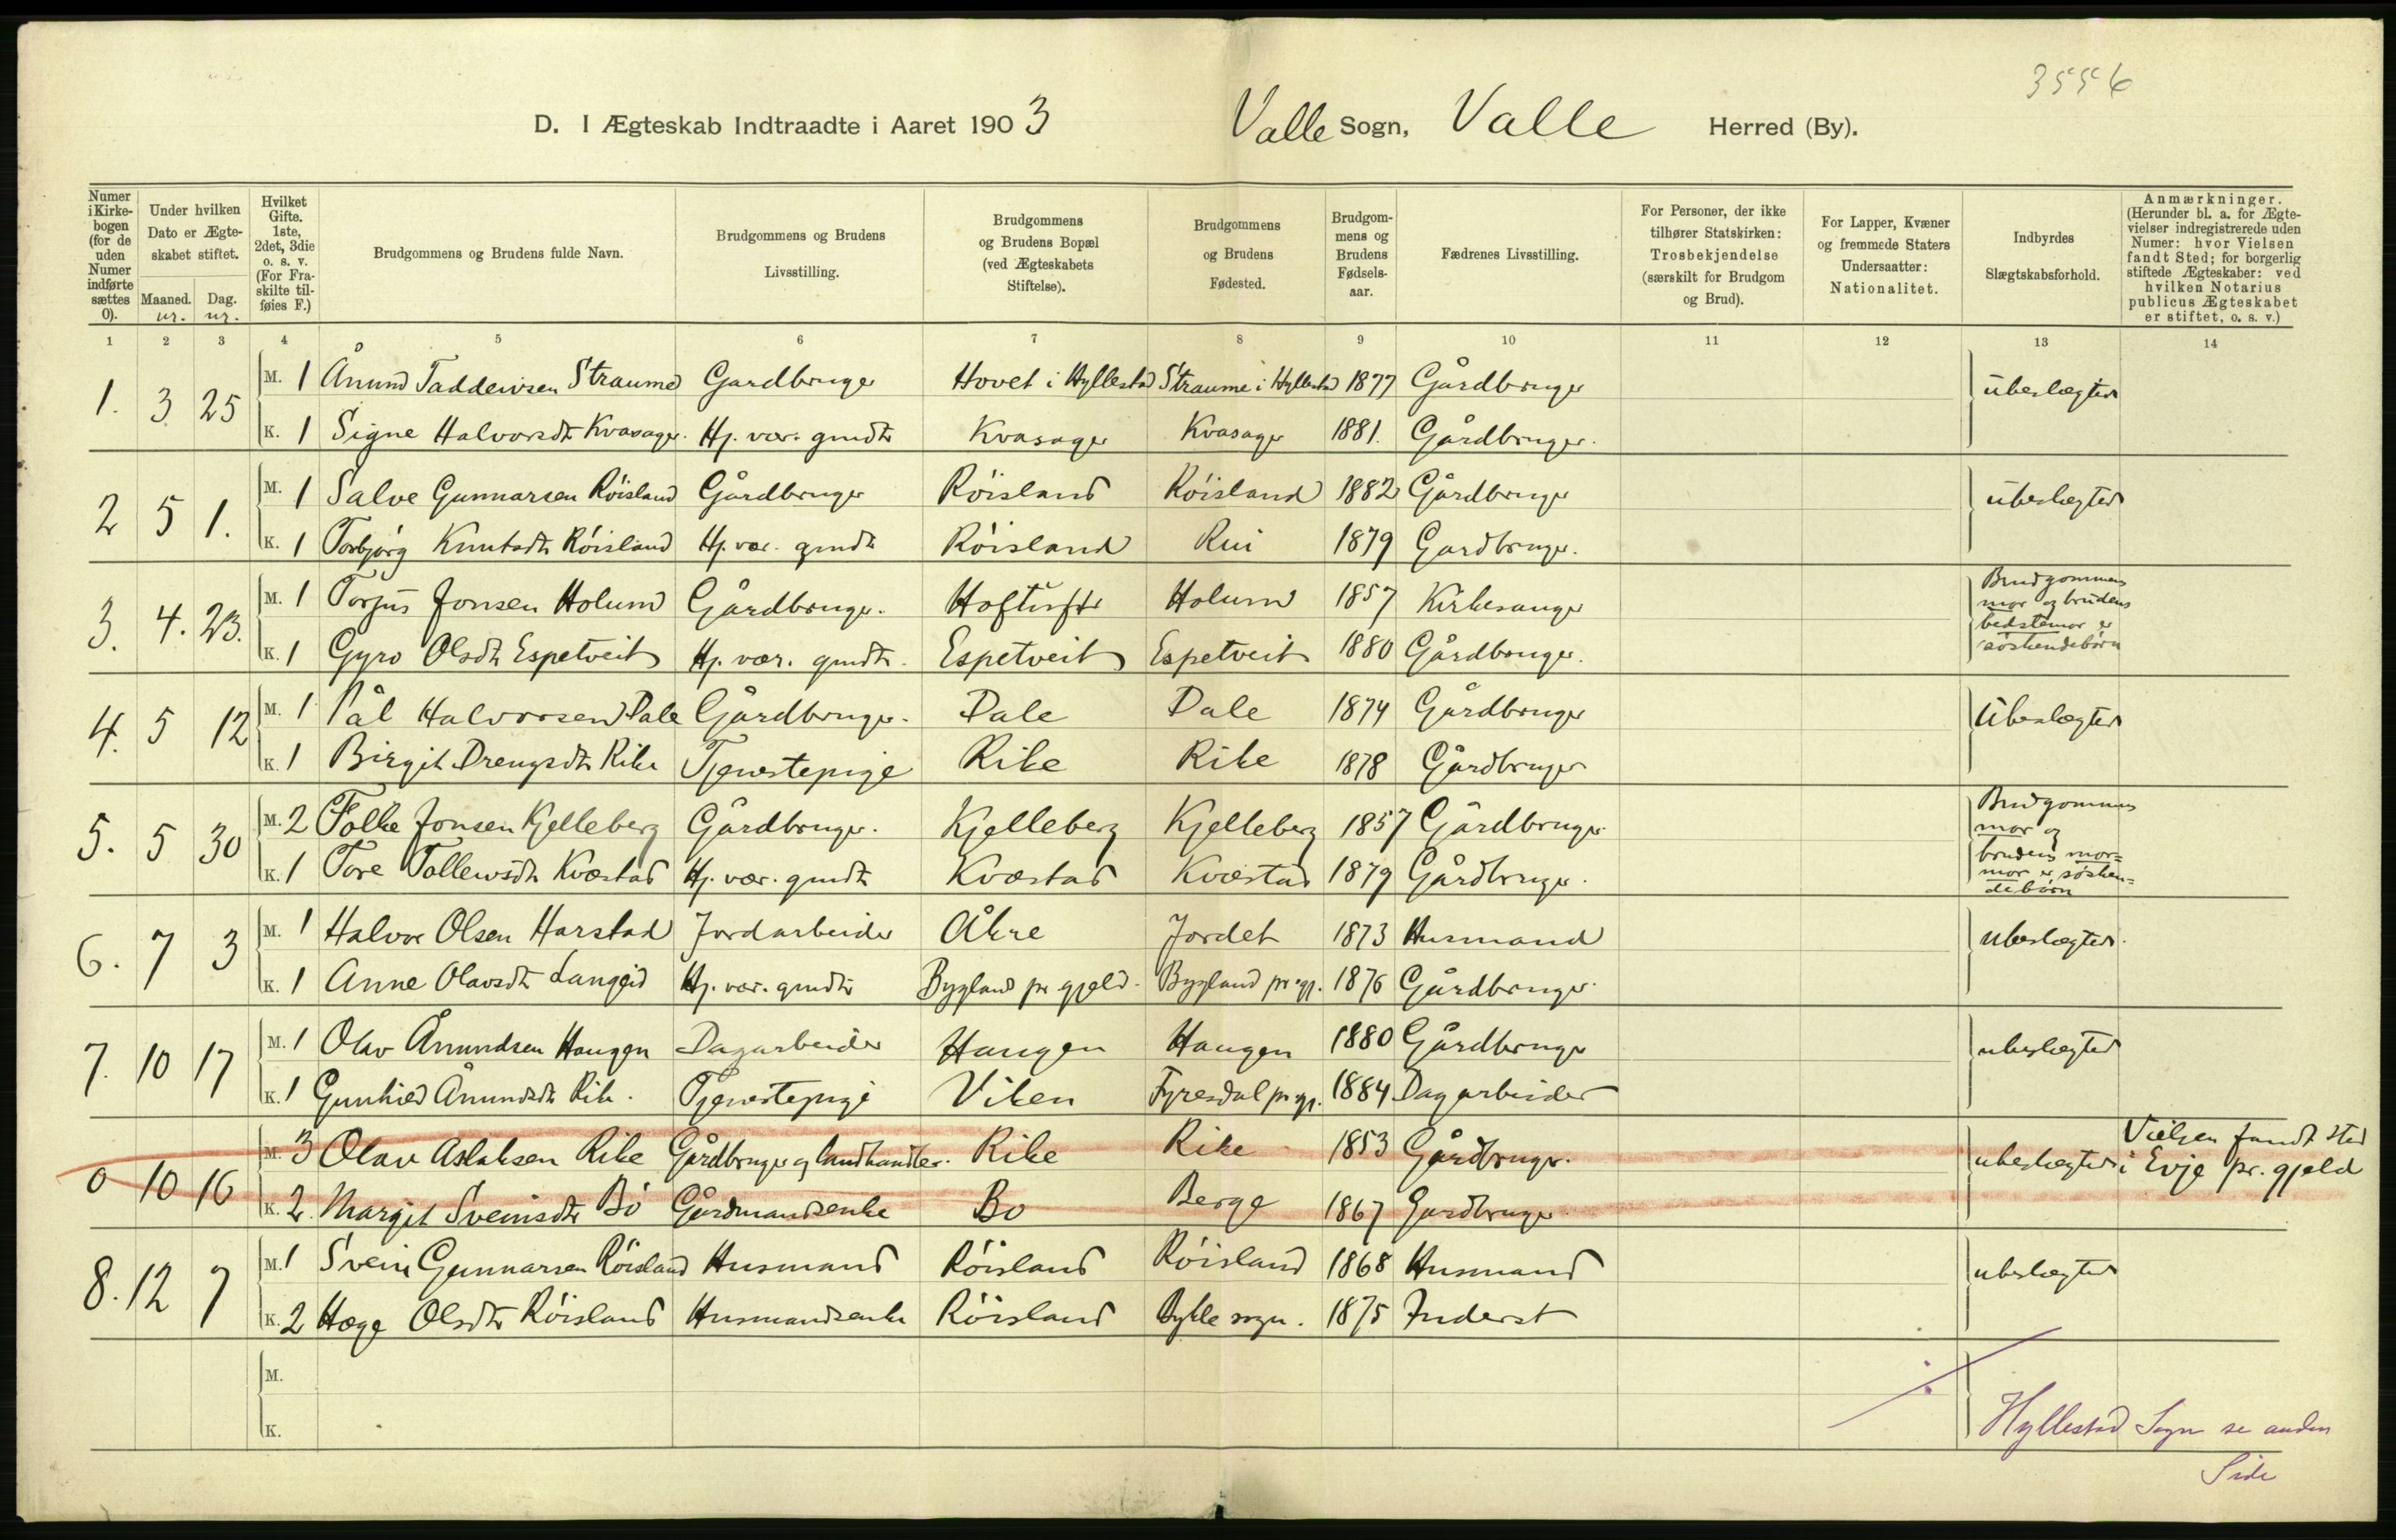 3556
D. I Ægteskab Indtraadte i Aaret 1903 Valle Sogn, Valle Herred (By).
Numer i Kirkebogen (for de uden Numer indførte sættes 0).
Under hvilken Dato er Ægteskabet stiftet.
Maaned. Dag.
nr. nr.
Hvilket Gifte. 1ste, 2det, 3die o. s. v. (For Fraskilte tilføies F.)
Brudgommens og Brudens fulde Navn.
Brudgommens og Brudens Livsstilling.
Brudgommens og Brudens Bopæl (ved Ægteskabets Stiftelse).
Brudgommens og Brudens Fødested.
Brudgommens og Brudens Fødselsaar.
Fædrenes Livsstilling.
For Personer, der ikke tilhører Statskirken: Trosbekjendelse (særskilt for Brudgom og Brud).
For Lapper, Kvæner og fremmede Staters Undersaatter: Nationalitet.
Indbyrdes Slægtskabsforhold.
Anmærkninger. (Herunder bl. a. for Ægtevielser indregistrerede uden Numer: hvor Vielsen fandt Sted; for borgerlig stiftede Ægteskaber: ved hvilken Notarius publicus Ægteskabet er stiftet, o. s. v.)
1 2 3 4 5 6 7 8 9 10 11 12 13 14
1. 3 25 M. 1 Ånund Taddeivsen Straume Gardbruger Hovet i Hyllestad Straume i Hyllestad 1877 Gårdbruger ubeslægtet
K. 1 Signe Halvorsdtr Kvasager. Hj. vær. gmdtr Kvasager Kvasager 1881. Gårdbruger.
2 5 1. M. 1 Salve Gunnarsen Röisland Gårdbruger Röisland Röisland 1882 Gårdbruger ubeslægtet
K. 1 Torbjörg Knutsdtr Röisland Hj. vær. gmdtr Röisland Rui 1879 Gardbruger.
3. 4. 23. M. 1 Torjus Jonsen Holum Gårdbruger. Hoftuft Holum 1857 Kirkesanger Brudgommens mor og brudens bedstemor er söskendebörn
K. 1 Gyro Olsdtr Espetveit Hj. vær. gmdtr. Espetveit Espetveit 1880 Gårdbruger.
4. 5 12 M. 1 Pål Halvorsen Dale Gårdbruger. Dale Dale 1874 Gårdbruger Ubeslægtet
K. 1 Birgit Drengsdtr Rike Tjenestepige Rike Rike 1878 Gårdbruger
5. 5 30 M. 2 Folke Jonsen Kjelleberg Gårdbruger. Kjelleberg Kjelleberg 1857 Gårdbruger. Brudgommens mor og brudens mormor er söskendebörn
K. 1 Tore Tallewsdtr Kvæstad Hj. vær. gmdtr Kvæstad Kvæstad 1879 Gårdbruger.
6. 7 3 M. 1 Halvor Olsen Harstad Jordarbeider Åkre Jordet 1873 Husmand ubeslægtet.
K. 1 Anne Olavsdtr Langeid Hj. vær. gmdtr Bygland pr gjeld. Bygland pr gj. 1876 Gårdbruger.
7. 10 17 M. 1 Olav Ånundsen Haugen Dagarbeider Haugen Haugen 1880 Gårdbruger ubeslægtet
K. 1 Gunhild Ånundsdtr Rike. Tjenestepige Viken Fyresdal pr gj. 1884 Dagarbeider
0 10 16 M. 3 Olav Aslaksen Rike Gårdbruger og landhandler. Rike Rike 1853 Gårdbruger. ubeslægtet Vielsen fandt sted i Evje pr. gjeld
K. 2. Margit Sveinsdtr Bö Gårdmandsenke Bö Berge 1867 Gardbruger.
8. 12 7 M. 1 Svein Gunnarsen Röisland Husmand Röisland Röisland 1868 Husmand ubeslægtet
K. 2 Hæge Olsdtr Röisland Husmandsenke Röisland Bykle sogn. 1875 Inderst
M.
K.
Hyllestad Sogn se anden
Side